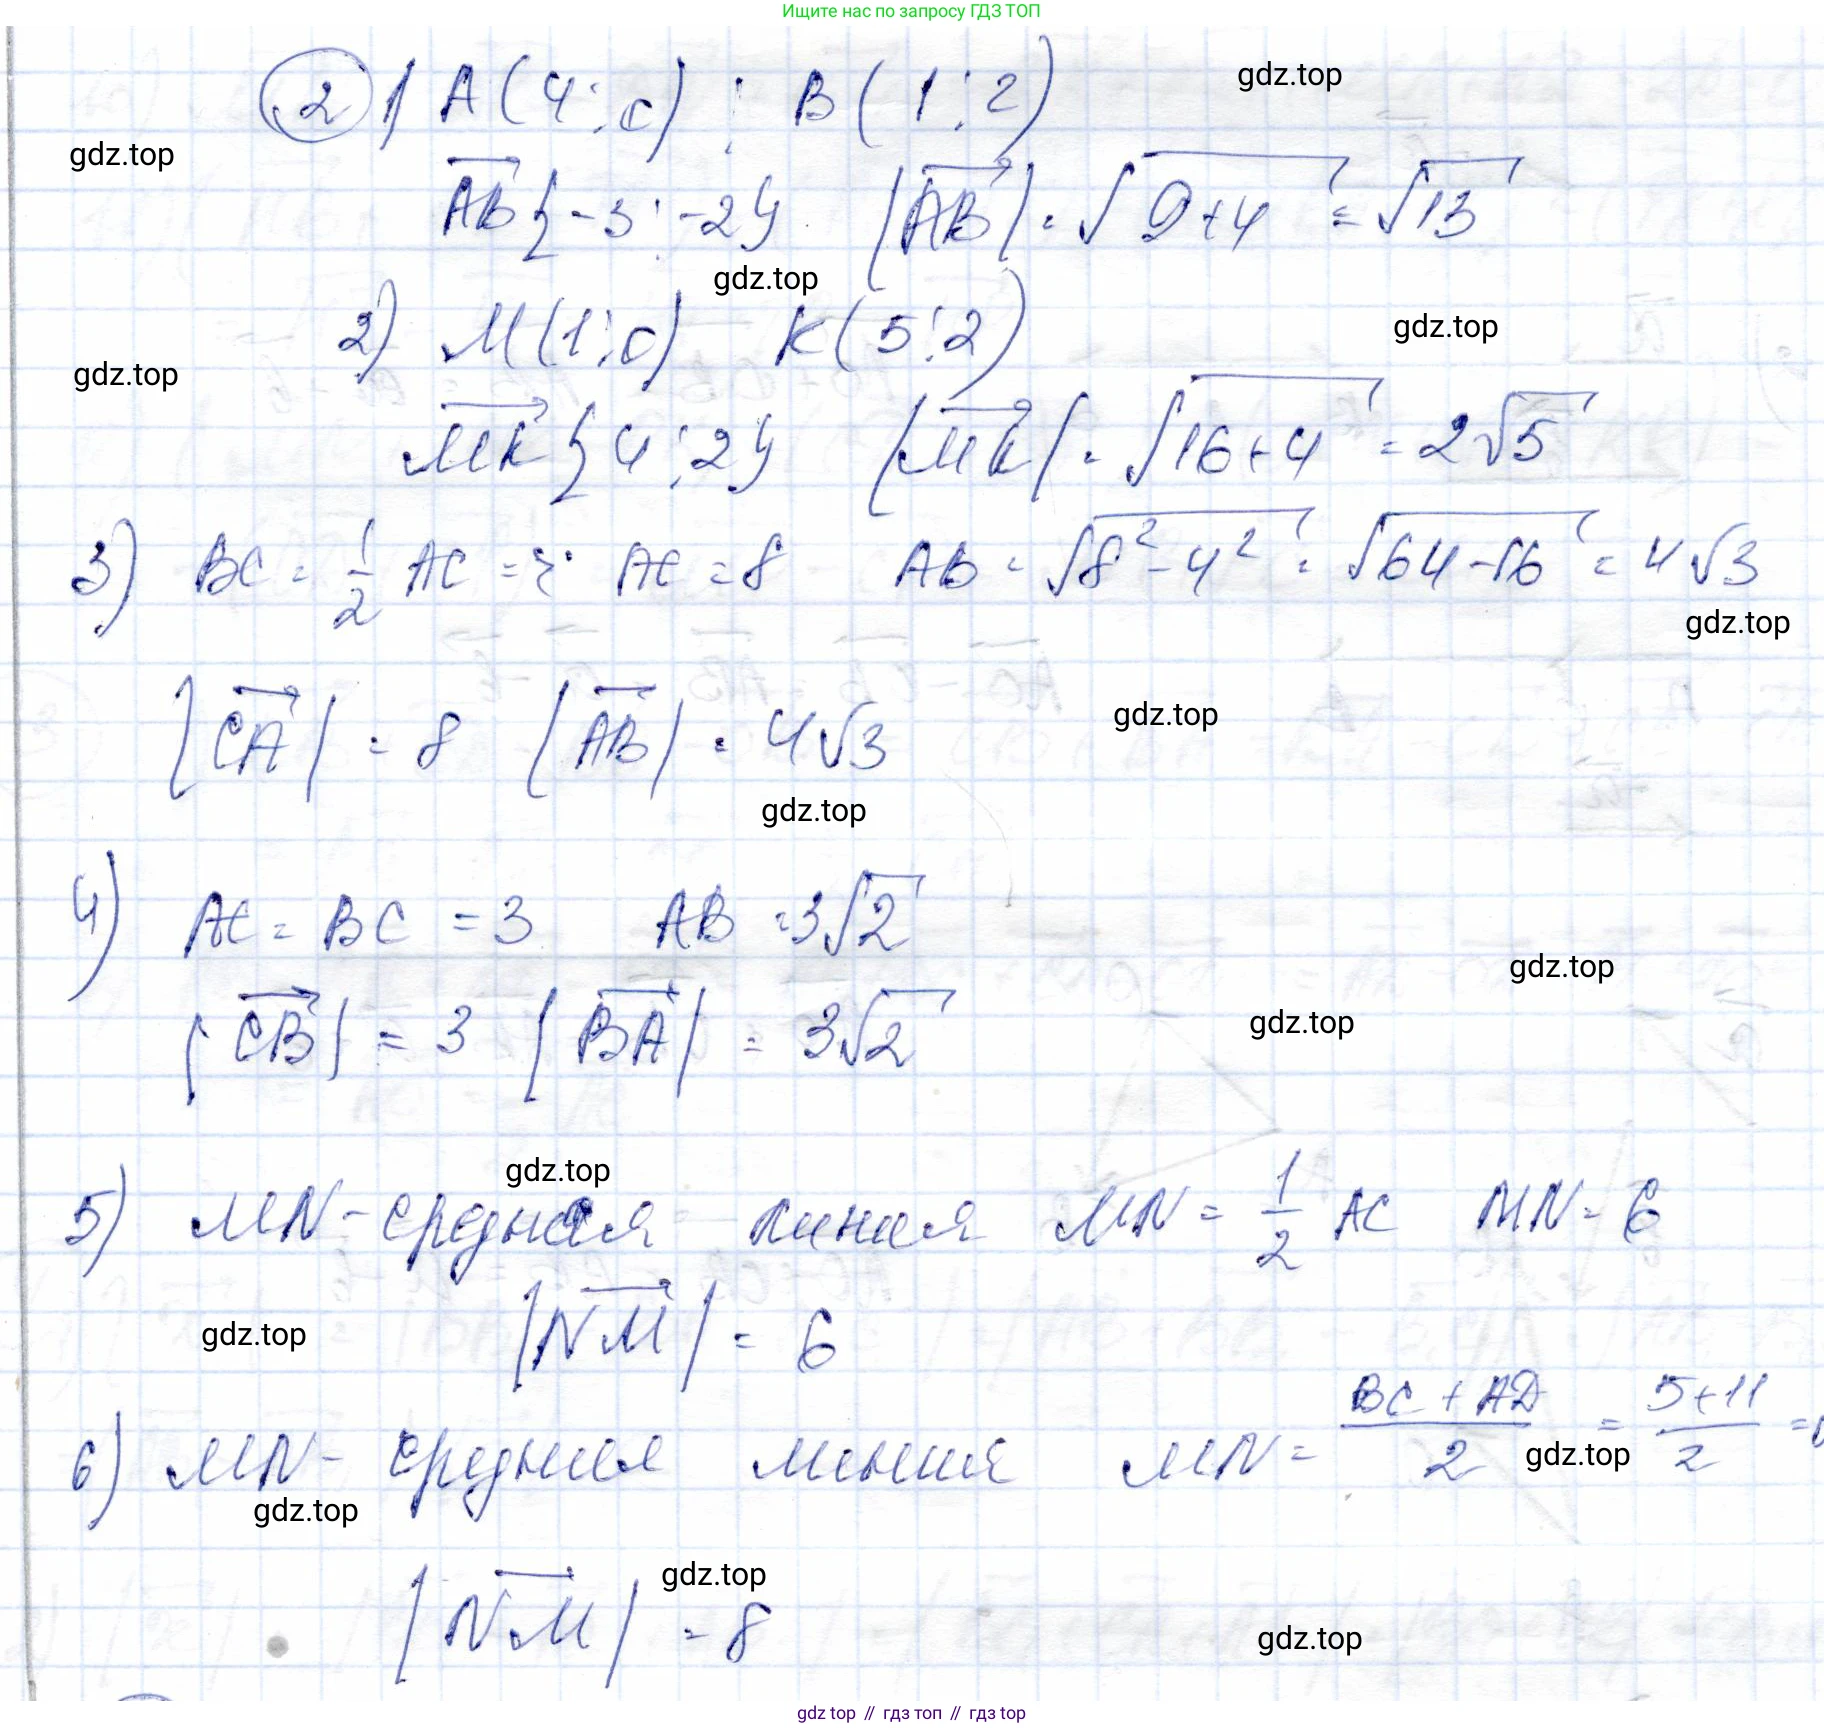 Ищите нас по запросу ГДЗ ТОП
2 1) A(4;0) ; B(1;2) gdz.top
gdz.top
AB{-3;-2} |AB| = √9+4 = √13
gdz.top
2) M(1;0) K(5;2) gdz.top
gdz.top
MK{4;2} |MK| = √16+4 = 2√5
3) BC = 1/2 AC => AC = 8 AB = √8²-4² = √64-16 = 4√3
gdz.top
|CA| = 8 |AB| = 4√3 gdz.top
gdz.top
4) AC = BC = 3 AB = 3√2
gdz.top
|CB| = 3 |BA| = 3√2 gdz.top
gdz.top
5) MN - средняя линия MN = 1/2 AC MN = 6
gdz.top |NM| = 6
6) MN - средняя линия MN = BC+AD/2 = 5+11/2 =
gdz.top
gdz.top
gdz.top
|NM| = 8
gdz.top
gdz top // гдз топ // gdz top